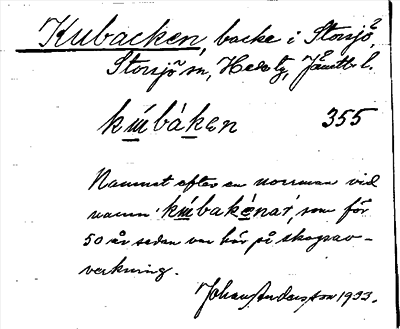 Kubacken, backe i Storsjö,
Storsjö sn, Heds tg, Jämtl. l.
kubáken 355
Namnet efter en norrman vid
namn 'kubakénar', som för
50 år sedan var här på skogsav-
verkning.
Johan Andersson 1933.